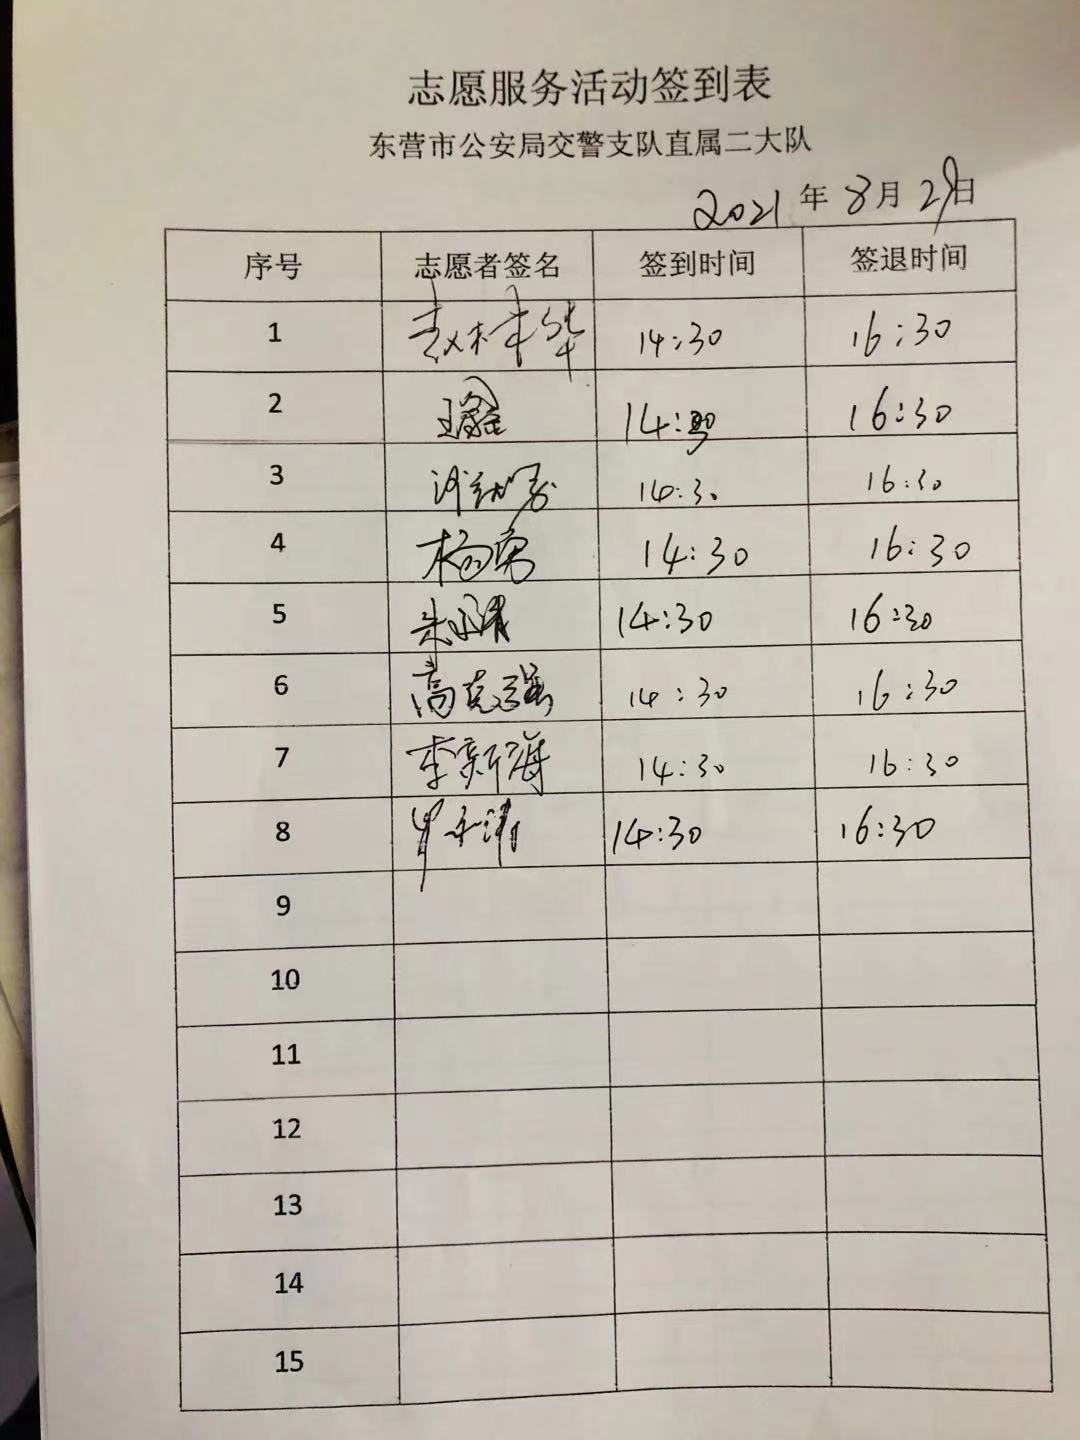 志愿服务活动签到表
东营市公安局交警支队直属二大队
2021年8月29日
序号 志愿者签名 签到时间 签退时间
1 14:30 16:30
2 王鑫 14:30 16:30
3 14:30 16:30
4 杨勇 14:30 16:30
5 14:30 16:30
6 高克强 14:30 16:30
7 李新海 14:30 16:30
8 14:30 16:30
9
10
11
12
13
14
15